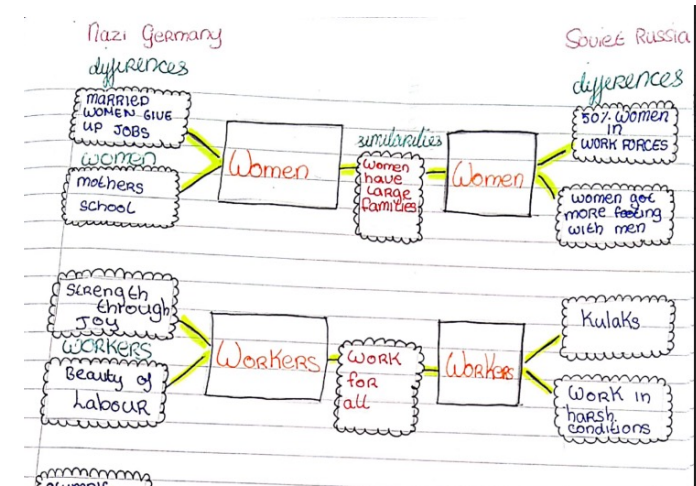 Nazi Germany
Soviet Russia
differences
differences
MARRIED
WOMEN GIVE
UP JOBS
women
mothers
school
Women
similarities
women
have
large
families
Women
50% women
in
WORK FORCES
women got
more footing
with men
Strength
through
Joy
WORKERS
Beauty of
Labour
WORKERS
WORK
for
all
Workers
Kulaks
Work in
harsh
conditions